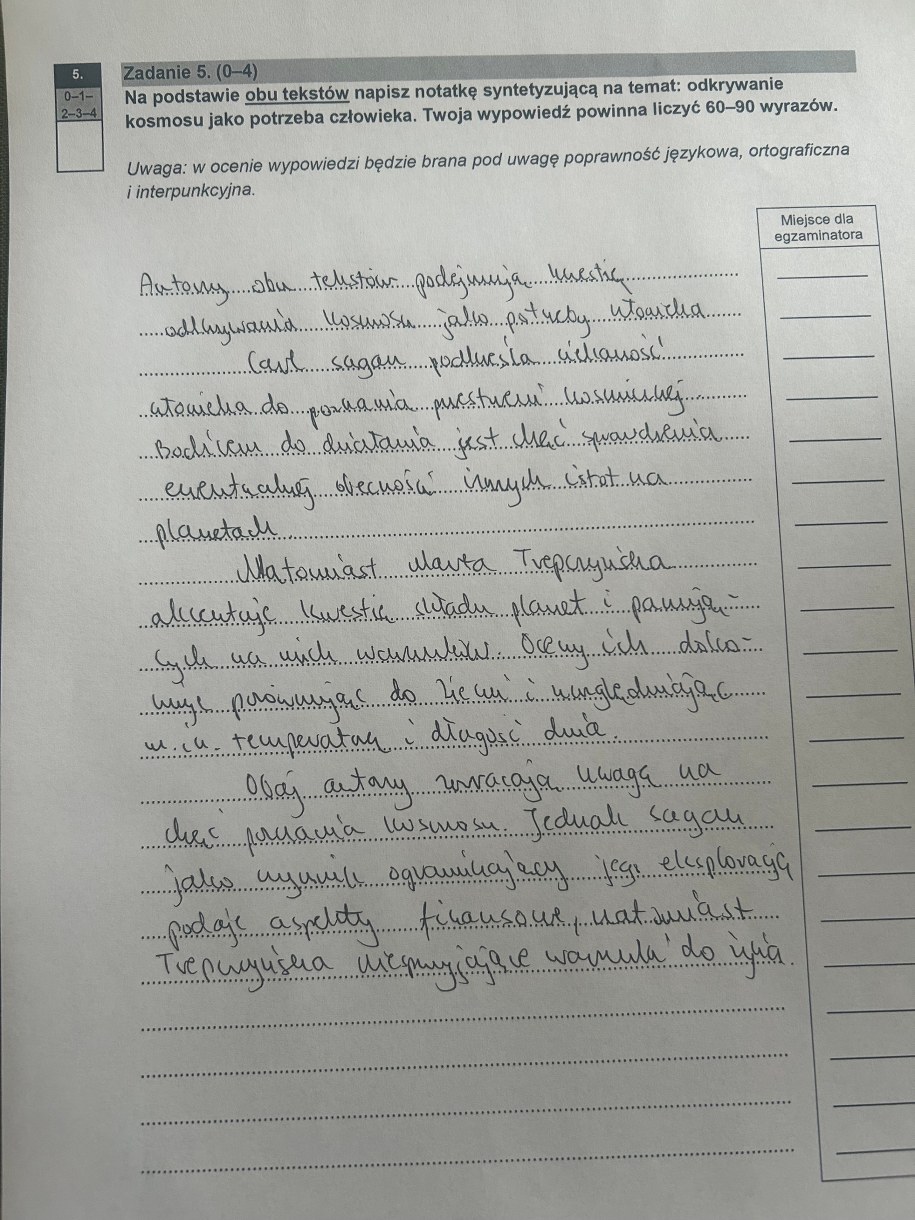 5.
0–1–
2–3–4
Zadanie 5. (0–4)
Na podstawie obu tekstów napisz notatkę syntetyzującą na temat: odkrywanie
kosmosu jako potrzeba człowieka. Twoja wypowiedź powinna liczyć 60–90 wyrazów.
Uwaga: w ocenie wypowiedzi będzie brana pod uwagę poprawność językowa, ortograficzna
i interpunkcyjna.
Miejsce dla
egzaminatora
Autorzy obu tekstów podejmują kwestię
odkrywania kosmosu jako potrzeby człowieka
Carl sagan podkreśla ciekawość
człowieka do poznania przestrzeni kosmicznej.
Bodźcem do działania jest chęć sprawdzenia
ewentualnej obecności innych istot na
planetach.
Natomiast Marta Trepczyńska
akcentuje kwestię składu planet i panują-
cych na nich warunków. Oceny ich doko-
nuje porównując do Ziemi i uwzględniając
m.in. temperaturę i długość dnia.
Obaj autorzy zwracają uwagę na
chęć poznania kosmosu. Jednak sagan
jako czynnik ograniczający jego eksplorację
podaje aspekty finansowe, natomiast
Trepczyńska niesprzyjające warunki do życia.